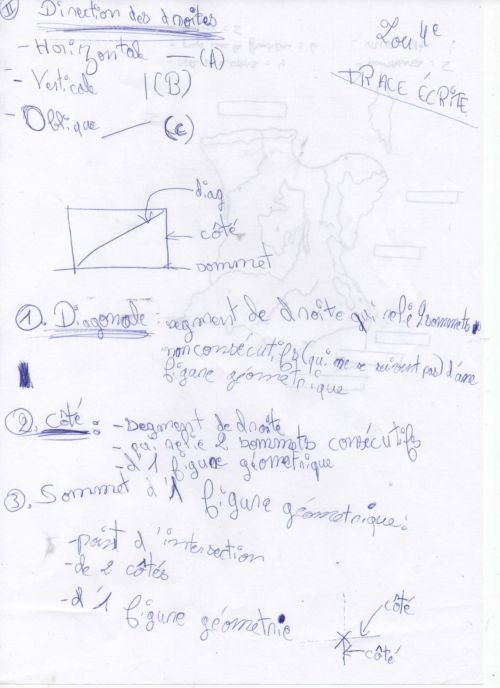 II Direction des droites
Lou 4e
TRACE ÉCRITE
- Horizontale — (A)
- Verticale | (B)
- Oblique (C)
diag
côté
sommet
1. Diagonale : segment de droite qui relie 2 sommets
non consécutifs (qui ne se suivent pas) d'une
figure géométrique
2. Côté : - Segment de droite
- qui relie 2 sommets consécutifs
- d'1 figure géométrique
3. Sommet d'1 figure géométrique :
- point d'intersection
- de 2 côtés
- d'1 figure géométrie
côté
côté